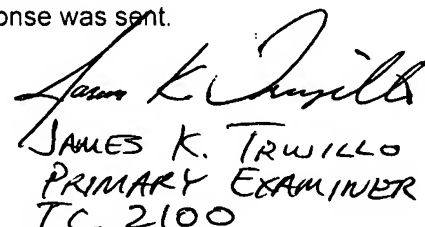 onse was sent.
James K Trujillo
JAMES K. TRUJILLO
PRIMARY EXAMINER
TC 2100